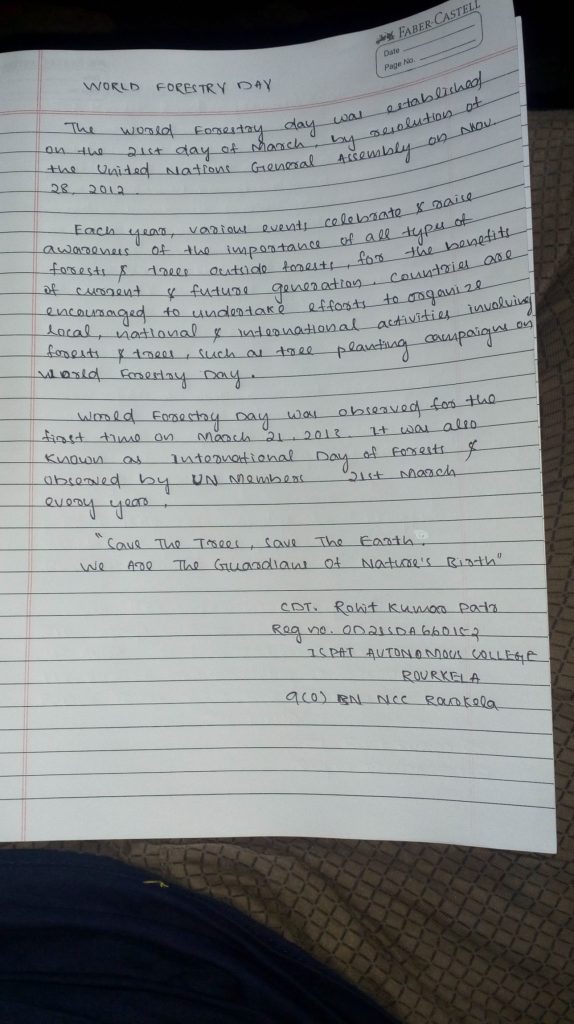 FABER-CASTELL
Date
Page No.
WORLD FORESTRY DAY
The World Forestry day was established
on the 21st day of March, by resolution of
the United Nations General Assembly on Nov.
28, 2012.
Each year, various events celebrate & raise
awareness of the importance of all type of
forests & trees outside forests, for the benefits
of current & future generation. Countries are
encouraged to undertake efforts to organize
local, national & international activities involving
forests & trees, such as tree planting campaigns on
World Forestry Day.
World Forestry Day was observed for the
first time on March 21, 2013. It was also
known as International Day of Forests &
observed by UN Members 21st March
every year.
"Save The Trees, Save The Earth
We Are The Guardians Of Nature's Birth"
CDT. Rohit Kumar Patr
Reg no.
ISPAT AUTONOMOUS COLLEGE
ROURKELA
9(O) BN NCC Rourkela